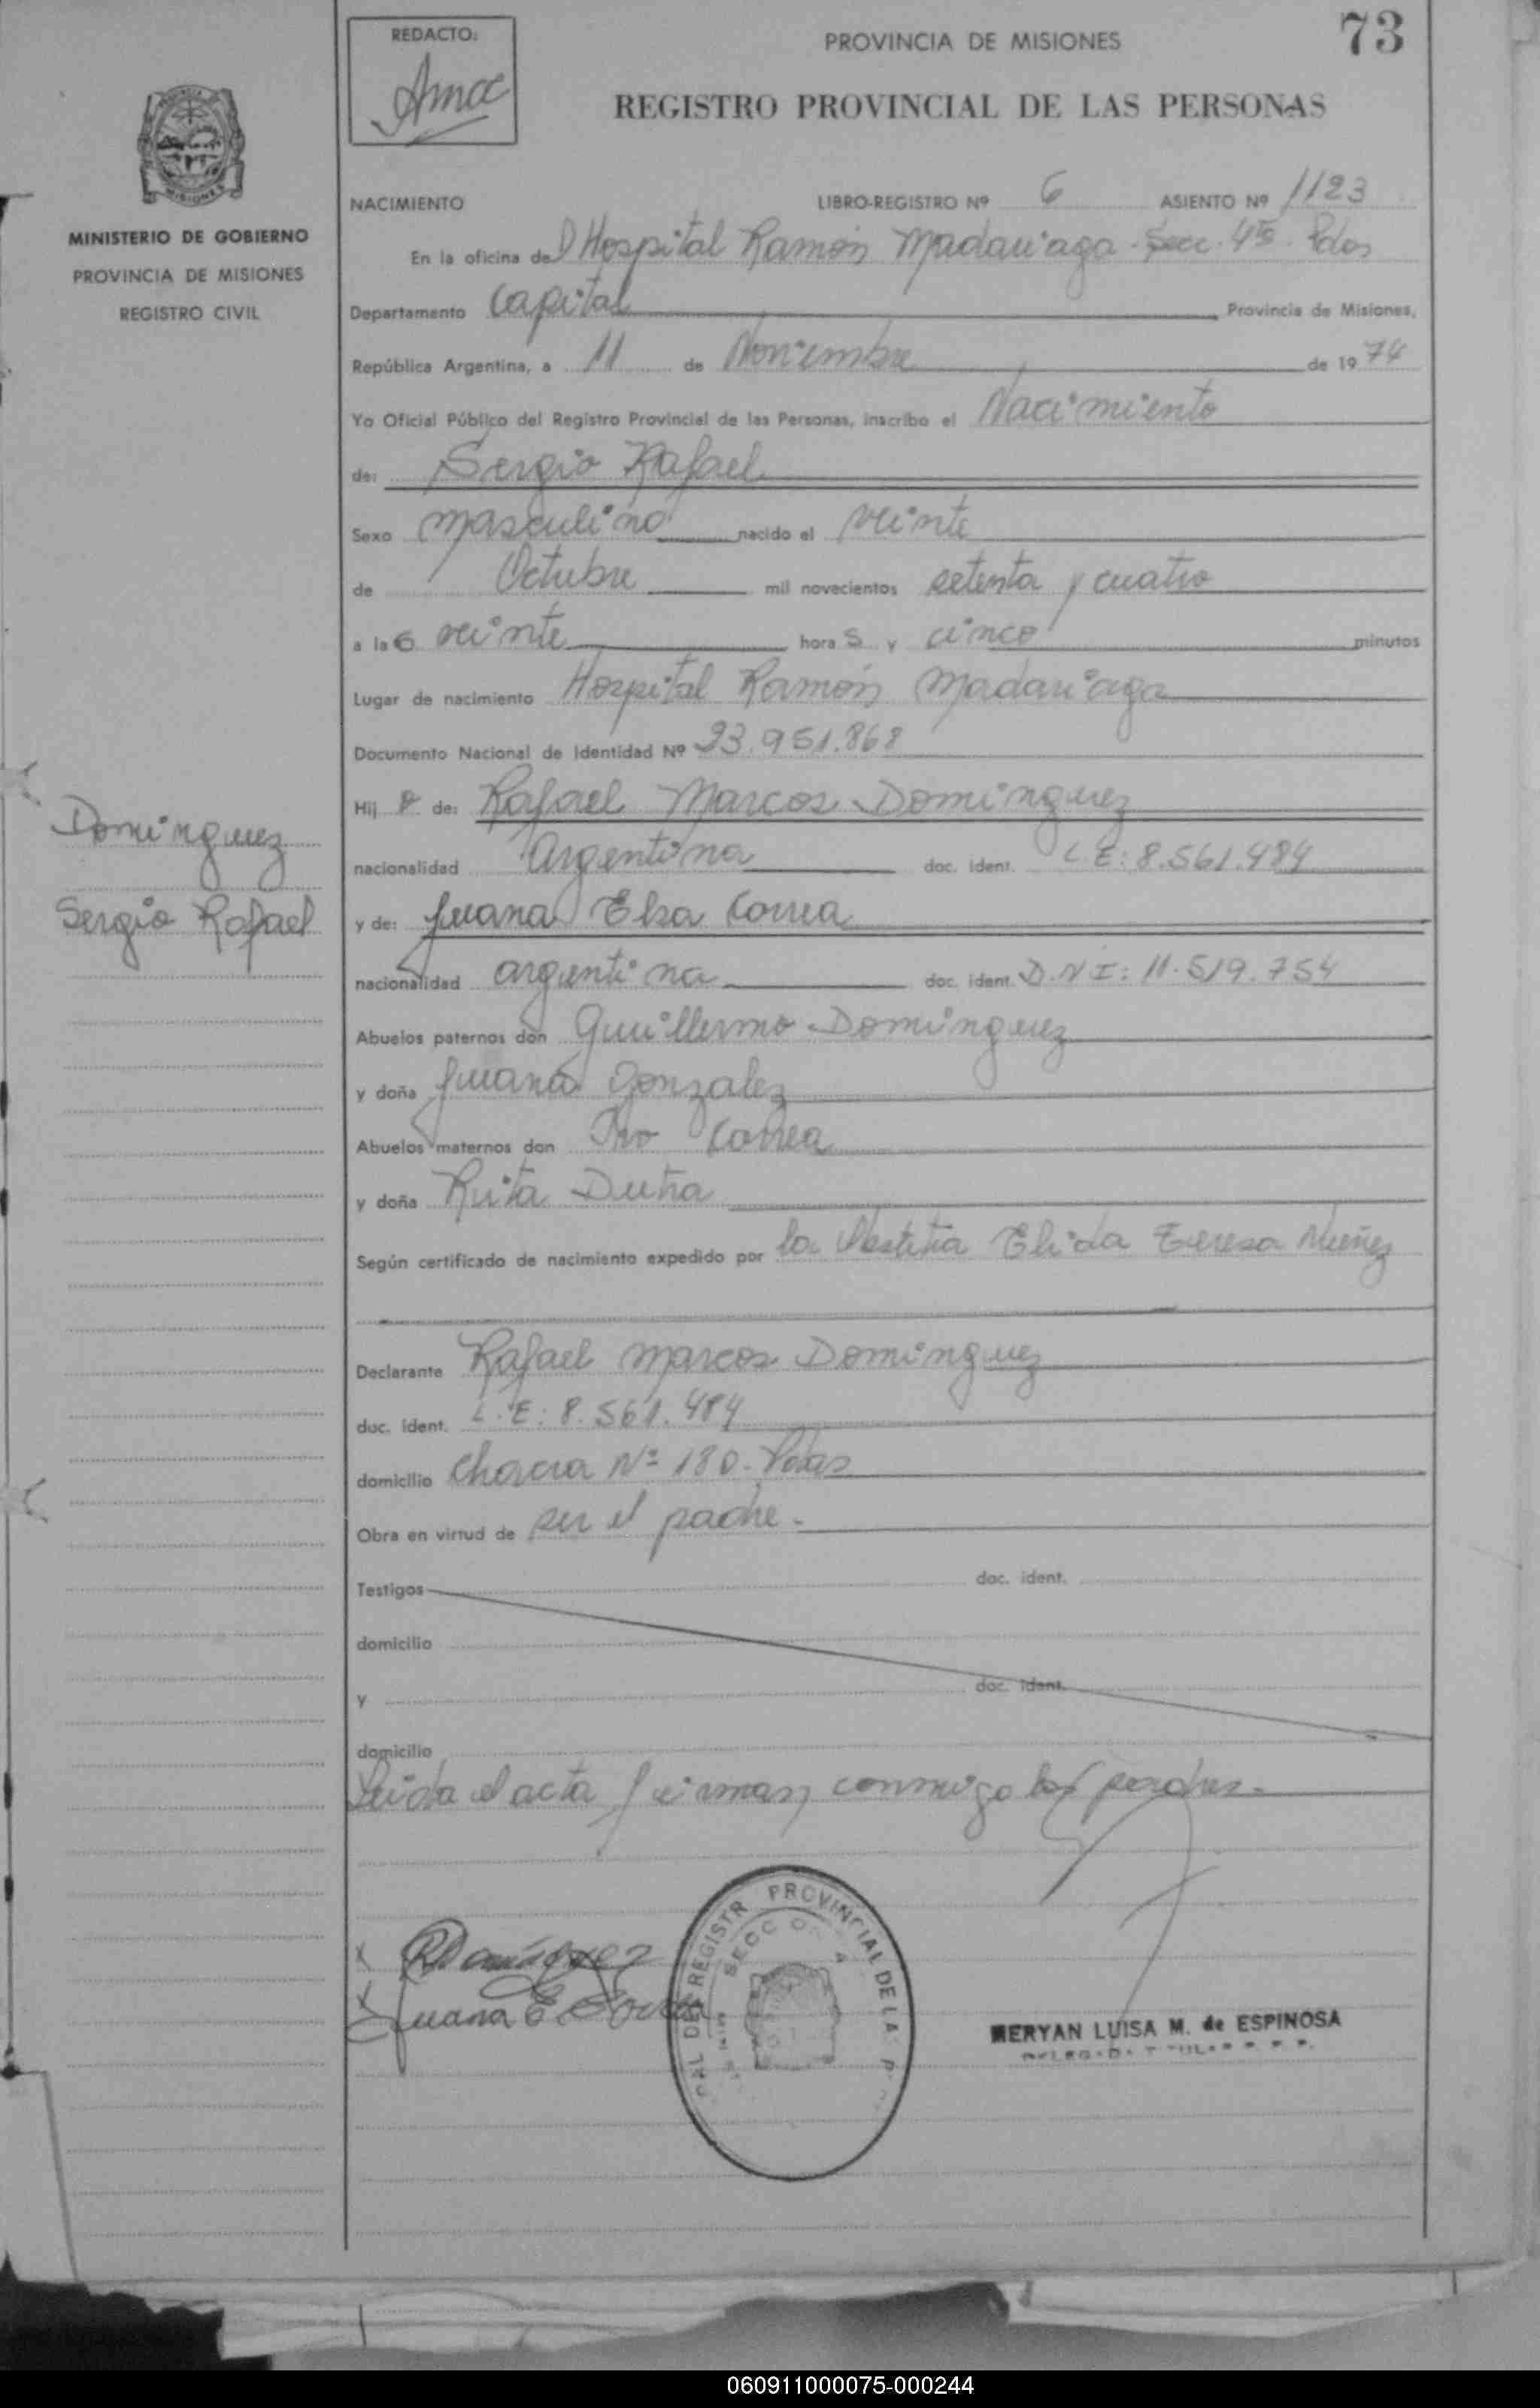 73
REDACTO:
PROVINCIA DE MISIONES
REGISTRO PROVINCIAL DE LAS PERSONAS
MISIONES
MINISTERIO DE GOBIERNO
PROVINCIA DE MISIONES
REGISTRO CIVIL
NACIMIENTO LIBRO-REGISTRO Nº 6 ASIENTO Nº 1123
En la oficina del Hospital Ramón Madariaga - Secc. 4ta. Pdas
Departamento Capital Provincia de Misiones,
República Argentina, a 11 de Noviembre de 1974
Yo Oficial Público del Registro Provincial de las Personas, inscribo el Nacimiento
de: Sergio Rafael
Sexo masculino nacido el veinte
de Octubre mil novecientos setenta y cuatro
a las veinte horas y cinco minutos
Lugar de nacimiento Hospital Ramón Madariaga
Documento Nacional de Identidad Nº 23.951.868
Hijo de: Rafael Marcos Dominguez
Dominguez
nacionalidad argentina doc. ident. L.E: 8.561.484
Sergio Rafael
y de: Juana Elsa Correa
nacionalidad argentina doc. ident. D.N.I: 11.519.754
Abuelos paternos don Guillermo Dominguez
y doña Juana Gonzalez
Abuelos maternos don Correa
y doña Rita Dutra
Según certificado de nacimiento expedido por la Elida Teresa Nuñez
Declarante Rafael Marcos Dominguez
doc. ident. L.E: 8.561.484
domicilio Chacra Nº 180. Pdas
Obra en virtud de ser el padre.
Testigos doc. ident.
domicilio
y doc. ident.
domicilio
Leida el acta firman conmigo los padres.
REGISTR PROVINCIAL DE LA
SECC
RDominguez
Juana E Correa
MERYAN LUISA M. de ESPINOSA
060911000075-000244